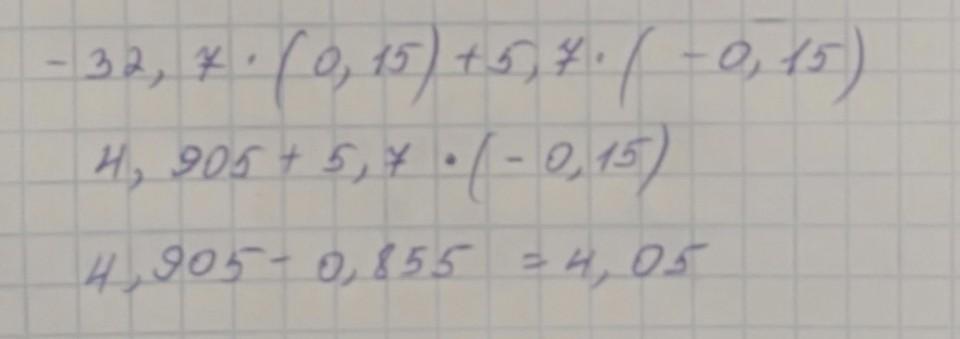 - 32, 7 · (0, 15) + 5, 7 · ( - 0, 15)
4, 905 + 5, 7 · (- 0, 15)
4, 905 - 0, 855 = 4, 05